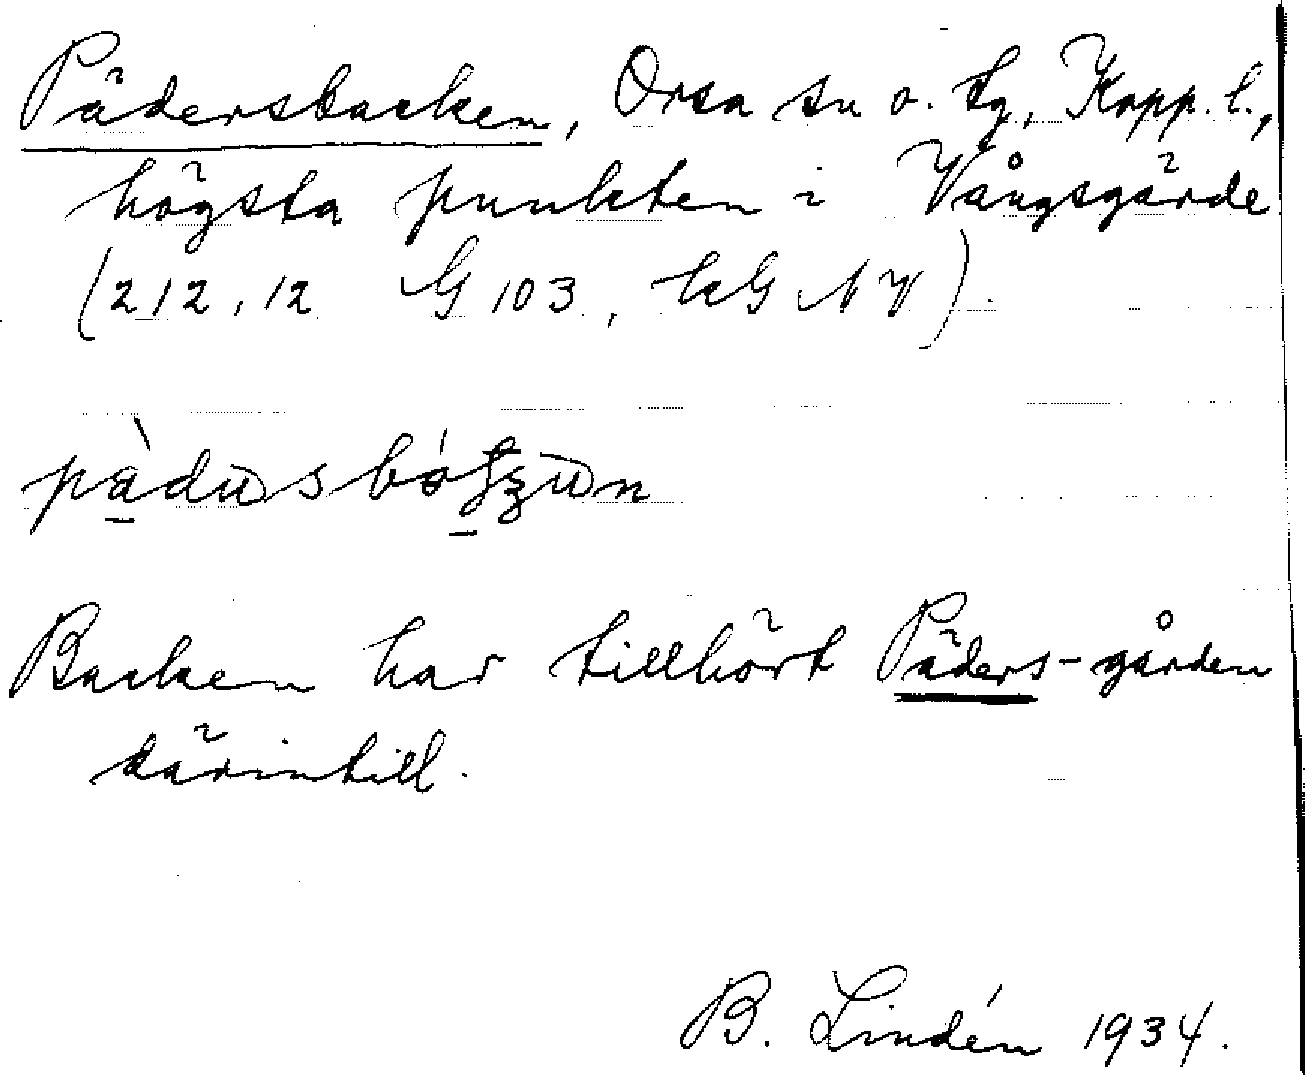 Pädersbacken, Orsa sn o. tg, Kopp. l.,
högsta punkten i Vångsgärde
(212,12 G 103, kG NV).
Backen har tillhört Päders-gården
därintill.
B. Lindén 1934.